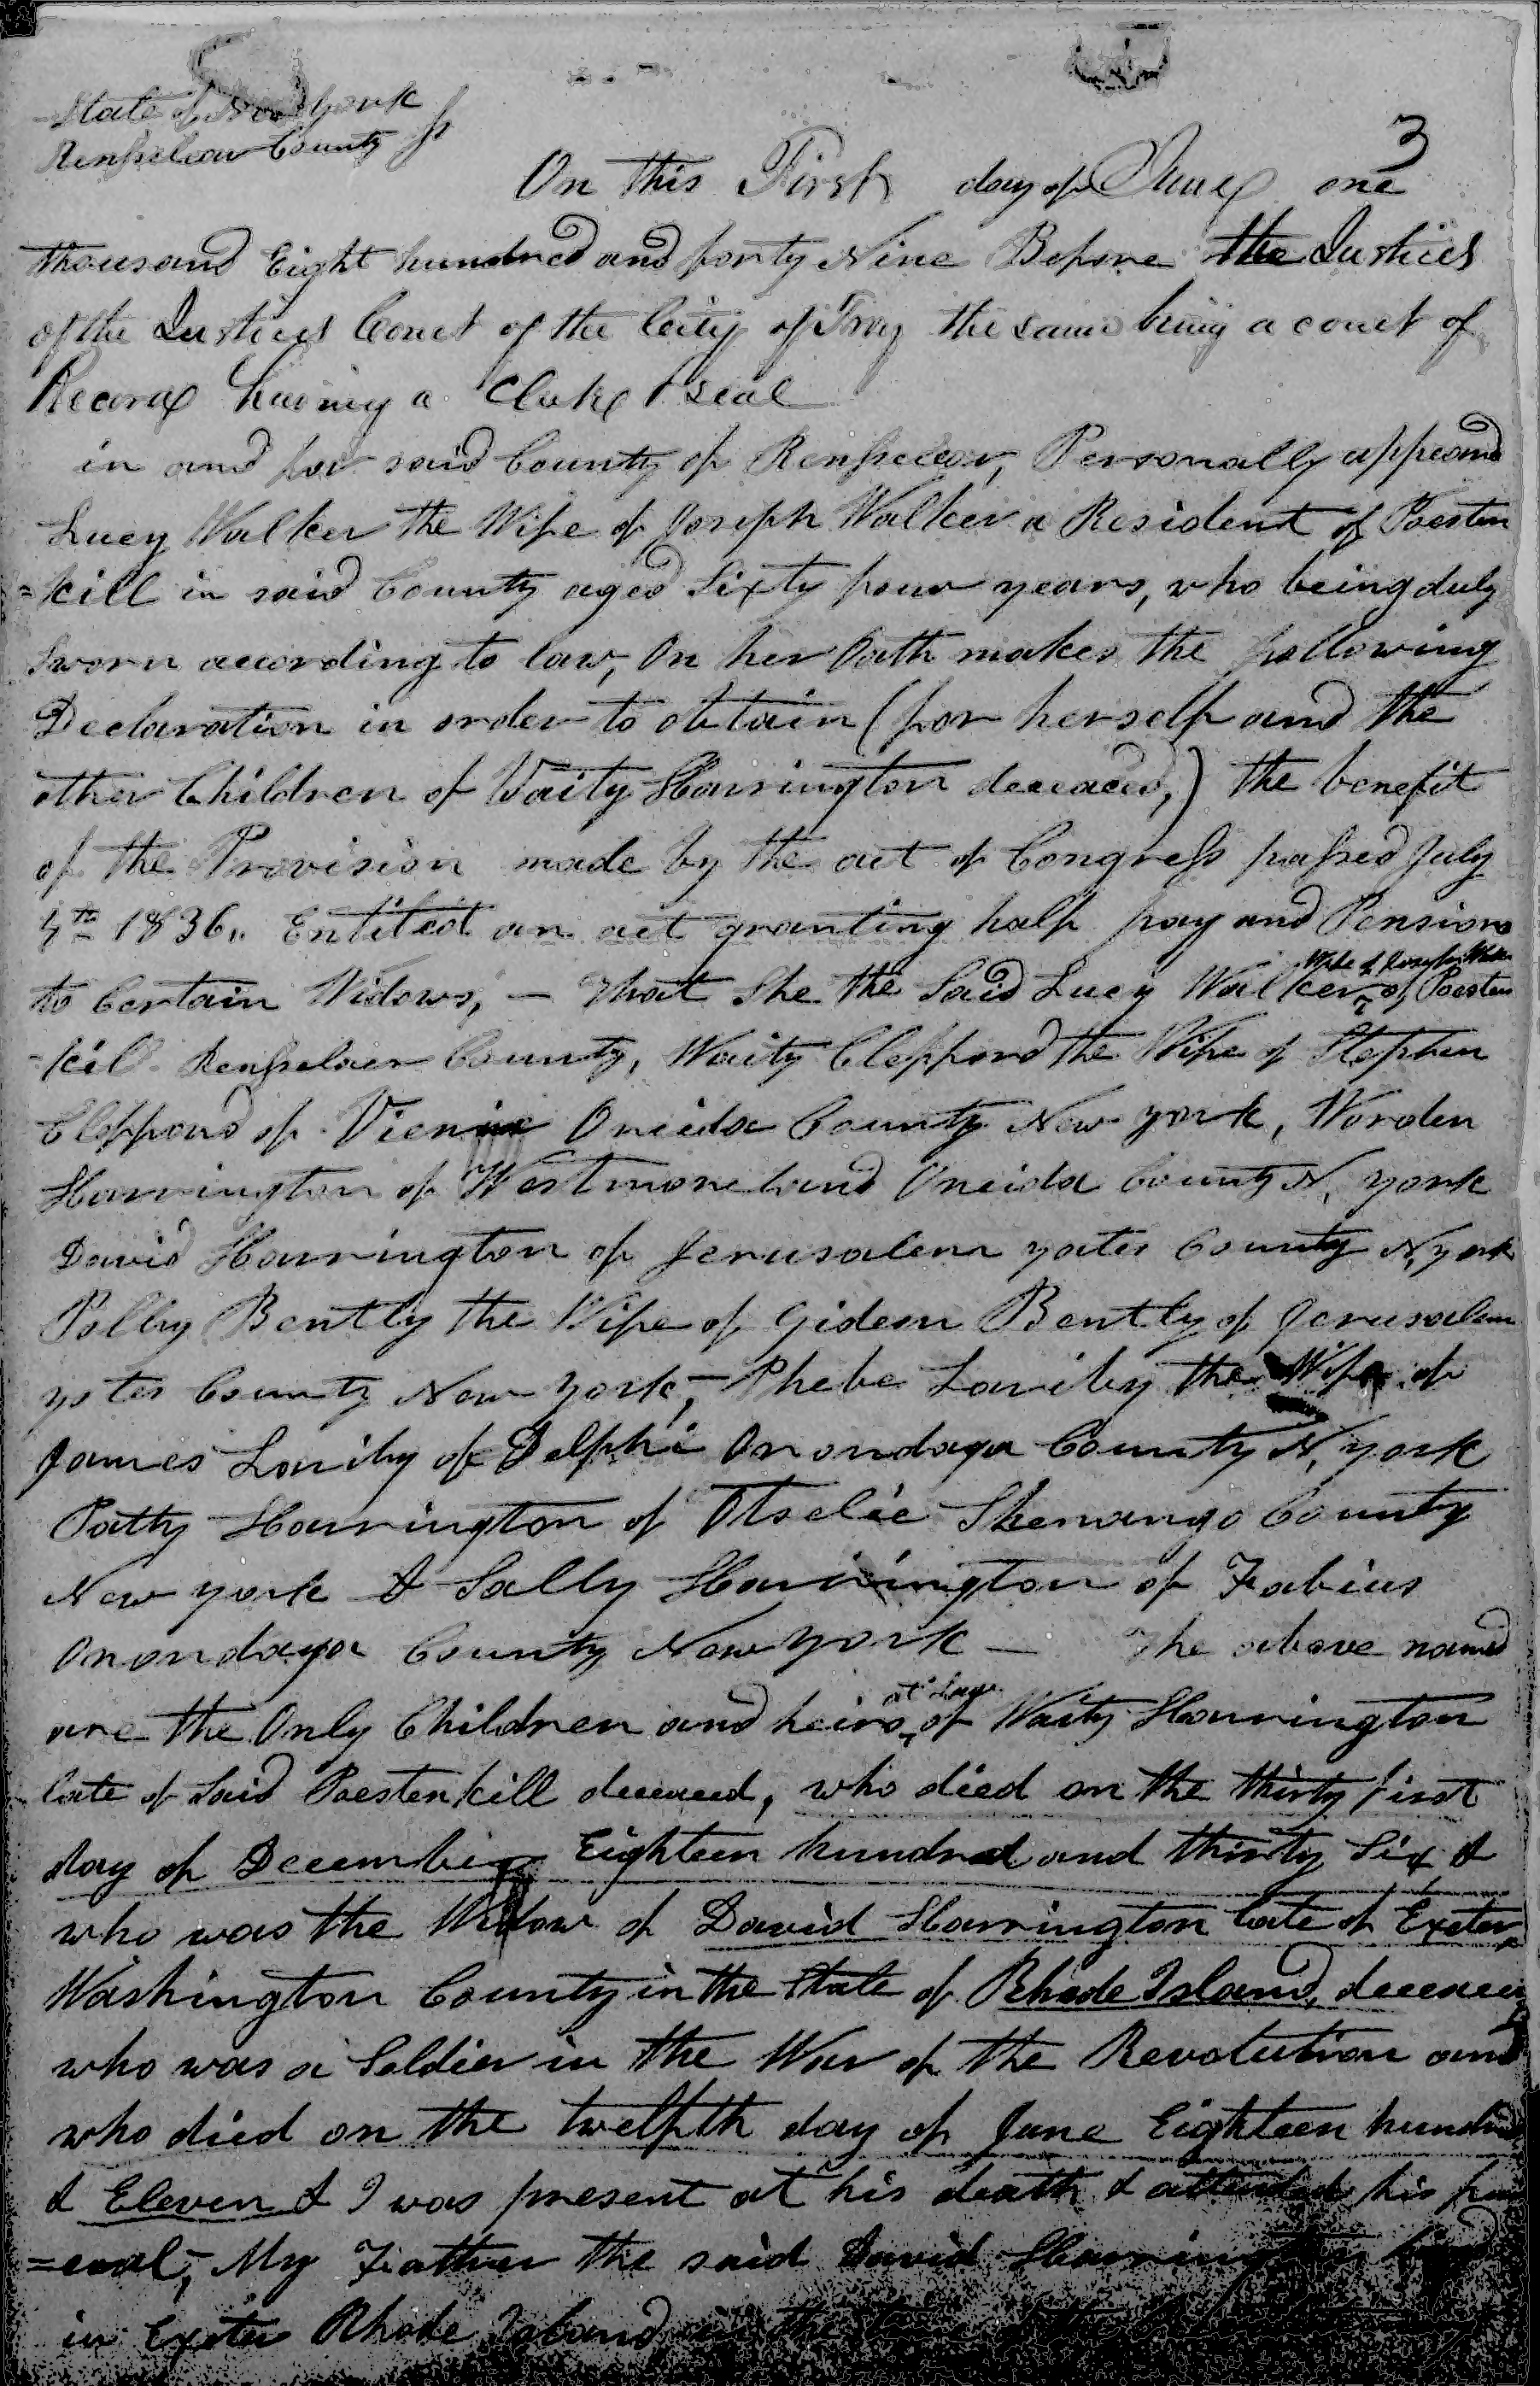 State of New York
Rensselaer County } ss
3
On this First day of June one
thousand Eight hundred and forty Nine Before the Justices
of the Justices Court of the City of Troy the same being a court of
Record having a Clerk & seal
in and for said County of Rensselaer, Personally appeared
Lucy Walker the Wife of Joseph Walker a Resident of Poesten
=kill in said County aged Sixty four years, who being duly
Sworn according to law, On her Oath makes the following
Declaration in order to obtain (for herself and the
other Children of Waity Harrington deceaced,) the benefit
of the Provision made by the act of Congress passed July
4th 1836,, Entitled an act granting half pay and Pensions
to Certain Widows, — That She the Said Lucy Walker Wife of Joseph of Poesten
=kill Rensselaer County, Waity Clefford the Wife of Stephen
Clefford of Vienna Oneida County New york, Worden
Harrington of Westmoreland Oneida County N, york
David Harrington of Jerusalem yates County N, york
Polley Bently the Wife of Gideon Bently of Jerusalem
yates County New York, – Phebe the Wife of
James of Delphi Onondaga County N, york
Patty Harrington of Otselic Shenango County
New york & Sally Harrington of Fabius
Onondaga County New York — The above named
are the Only Children and heirs at Law of Waity Harrington
late of Said Poestenkill deceaced, who died on the thirty first
day of December Eighteen hundred and thirty Six &
who was the Widow of David Harrington late of Exeter
Washington County in the State of Rhode Island, deceaced
who was a Soldier in the War of the Revolution and
who died on the twelfth day of June Eighteen hundred
& Eleven & I was present at his death & attended his fun
=eral, – My Father the said David Harrington lived
in Exeter Rhode Island in the time of the